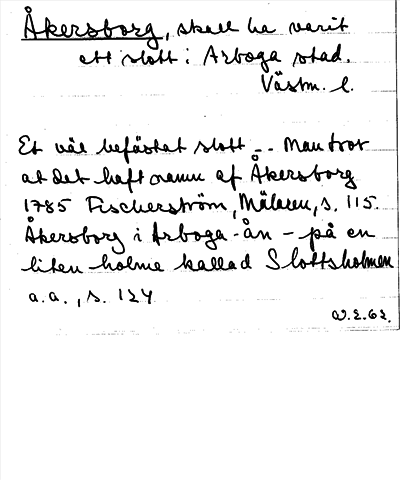 Åkersborg, skall ha varit
ett slott i Arboga stad.
Västm. l.
Et väl befästat slott -- Man tror
at det haft namn af Åkersborg
1785 Fischerström, Mälaren, s. 115.
Åkersborg i Arboga-ån - på en
liten holme kallad Slottsholmen
a.a., s. 124
W.E.62.